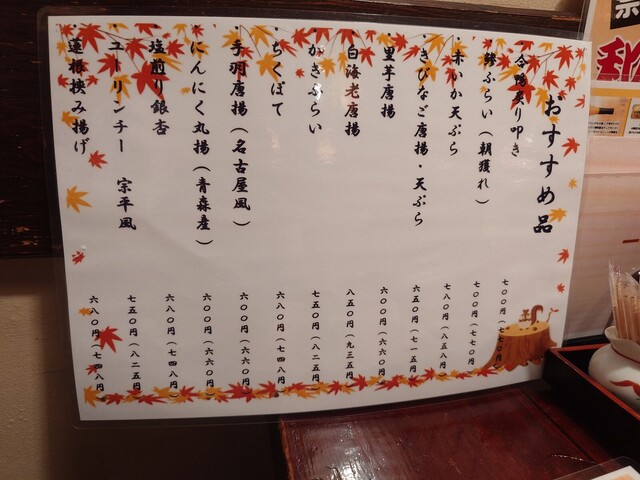 おすすめ品
・合鴨炙り叩き 七〇〇円(七七〇円)
・鯵ふらい(朝獲れ) 七〇〇円(七七〇円)
・赤いか天ぷら 七八〇円(八五八円)
・きびなご唐揚・天ぷら 六五〇円(七一五円)
・里芋唐揚 六〇〇円(六六〇円)
・白海老唐揚 八五〇円(九三五円)
・かきふらい 七五〇円(八二五円)
・ちくぽて 六八〇円(七四八円)
・手羽唐揚(名古屋風) 六〇〇円(六六〇円)
・にんにく丸揚(青森産) 六〇〇円(六六〇円)
・塩煎り銀杏 六八〇円(七四八円)
・ユーリンチー 宗平風 七五〇円(八二五円)
・蓮根挟み揚げ 六八〇円(七四八円)